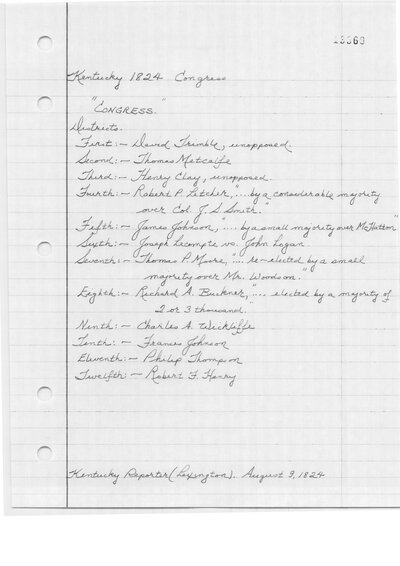 13360
Kentucky 1824 Congress
"CONGRESS."
Districts.
First:- David Trimble, unopposed.
Second:- Thomas Metcalfe
Third:- Henry Clay, unopposed.
Fourth:- Robert P. Letcher, "....by a considerable majority
over Col. J. S. Smith."
Fifth:- James Johnson, "....by a small majority over McHatton"
Sixth:- Joseph Lecompte vs. John Logan
Seventh:- Thomas P. Moore, "....re-elected by a small
majority over Mr. Woodson."
Eighth:- Richard A. Buckner, ".... elected by a majority of
2 or 3 thousand."
Ninth:- Charles A. Wickliffe
Tenth:- Francis Johnson
Eleventh:- Philip Thompson
Twelfth:- Robert F. Henry
Kentucky Reporter (Lexington). August 9, 1824